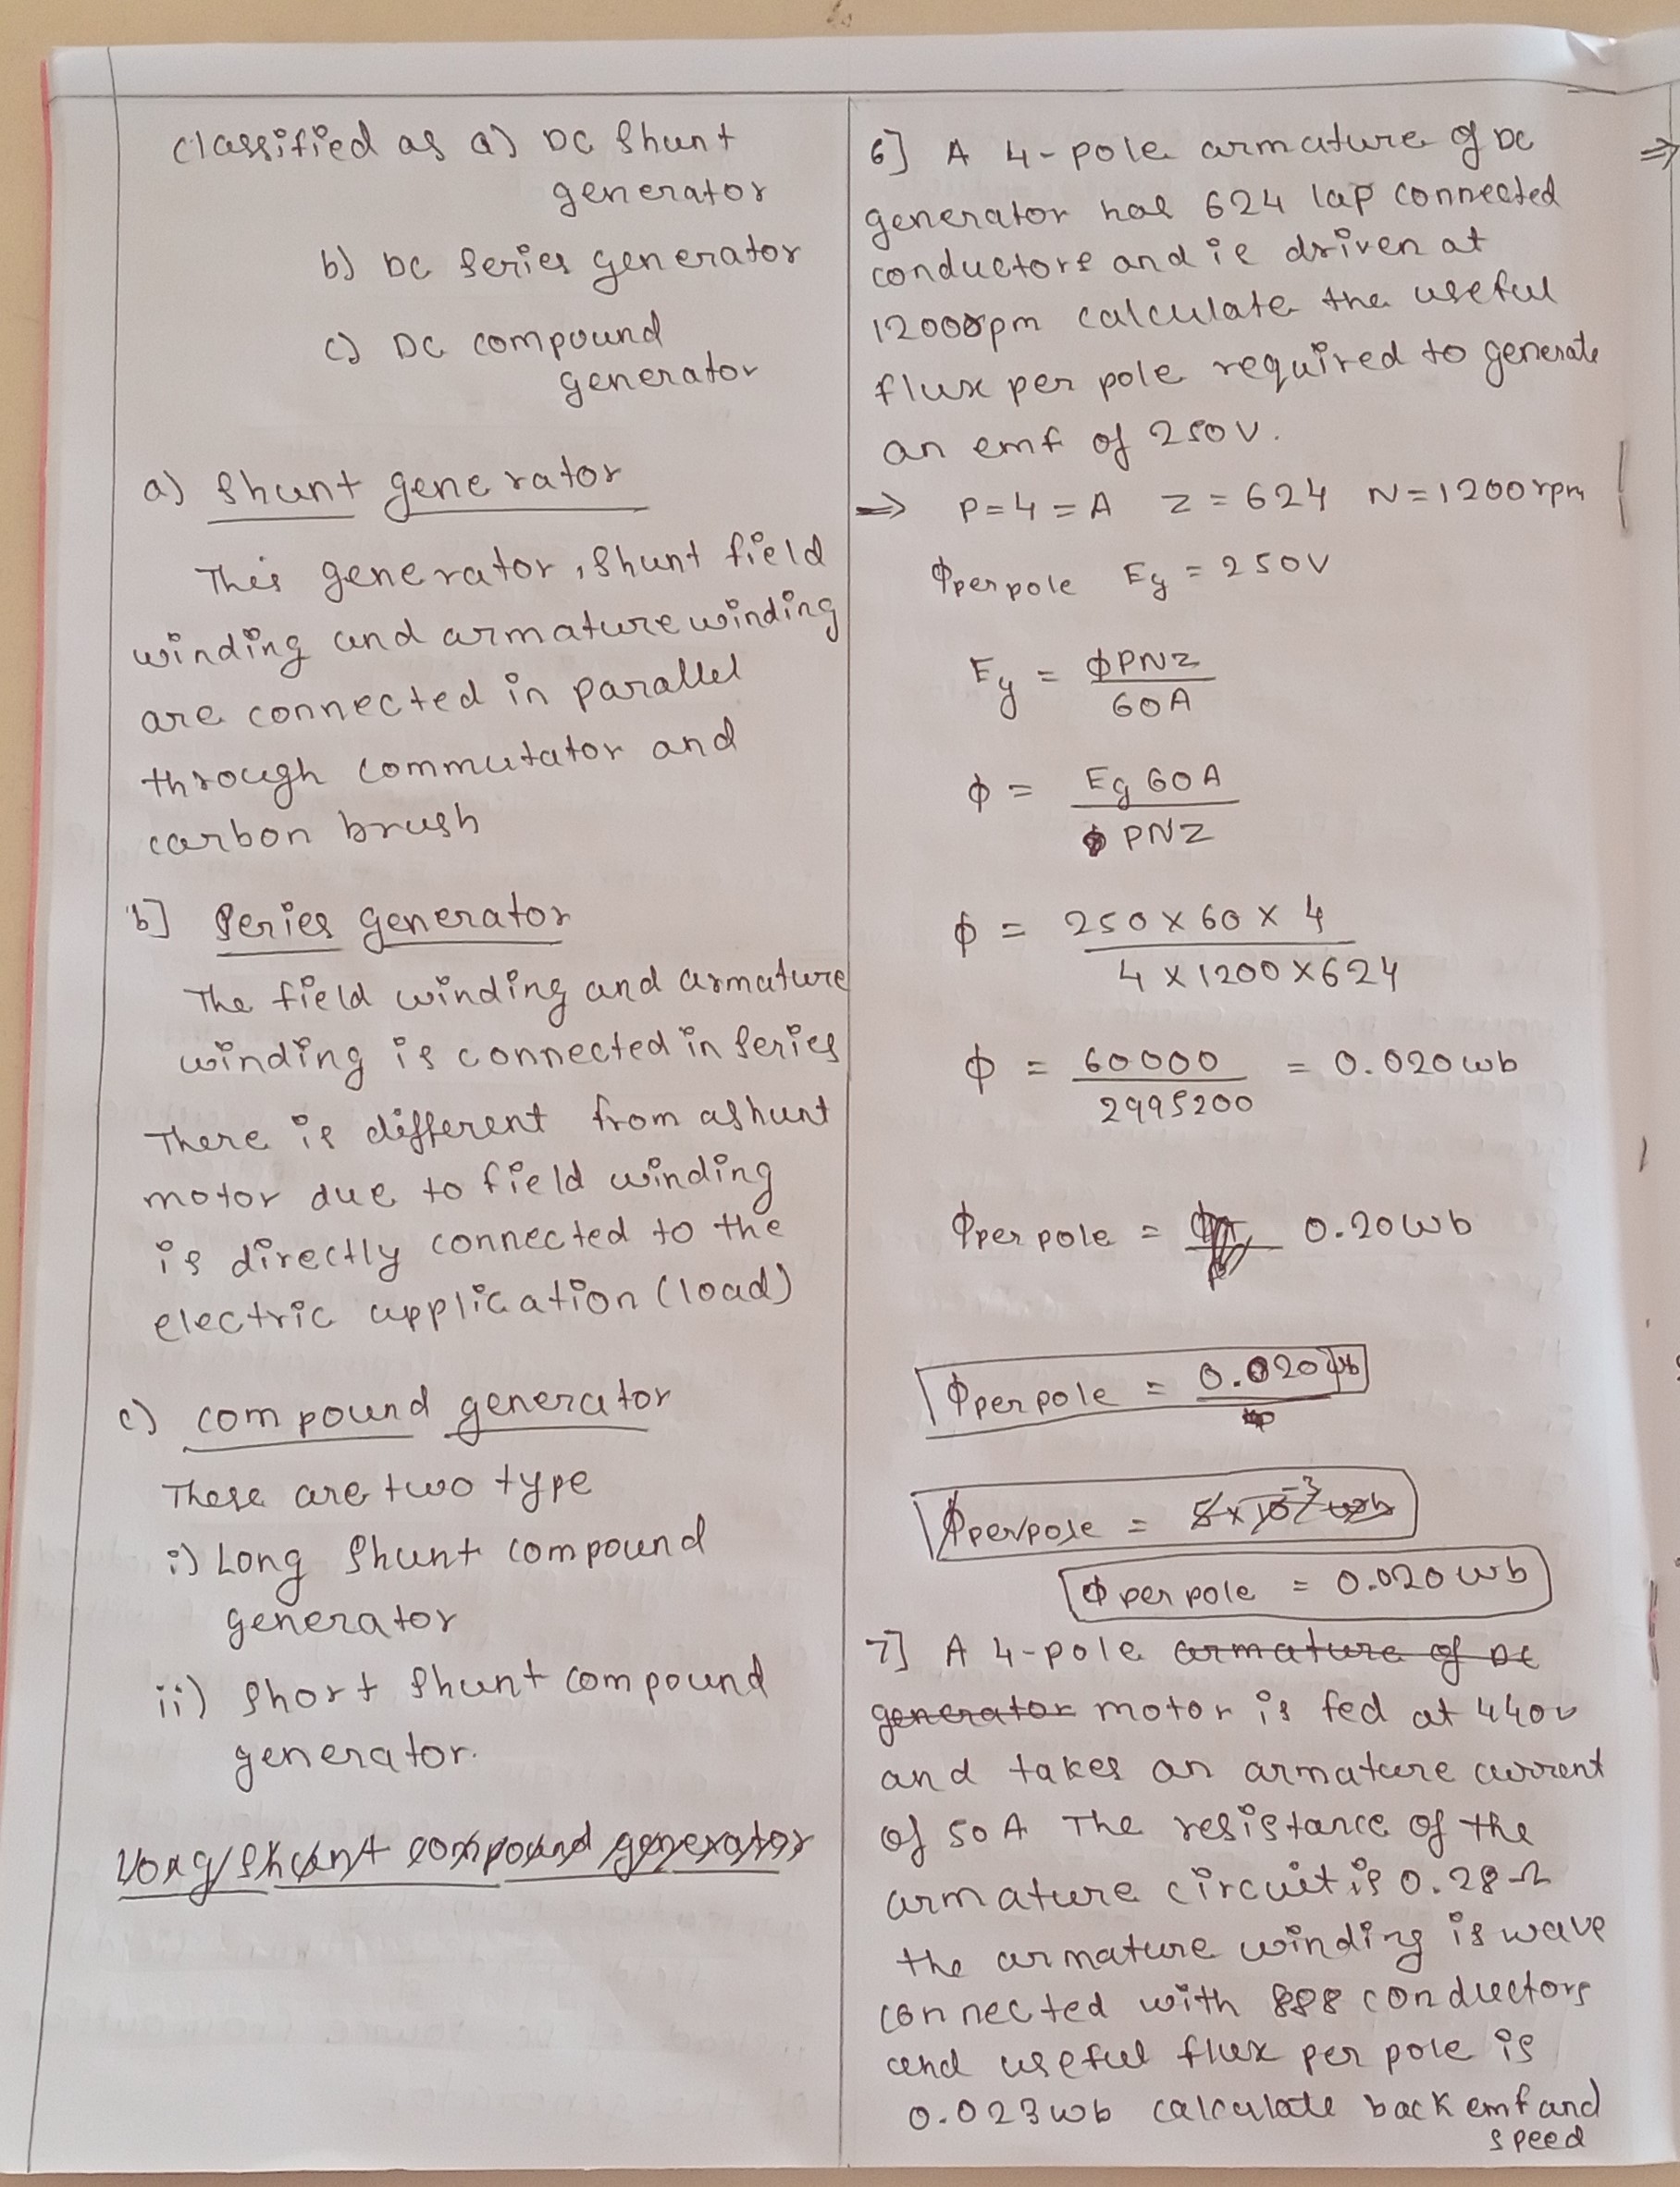 Classified as a) DC Shunt
generator
b) DC Series generator
c) DC compound
generator
a) Shunt generator
This generator, Shunt field
winding and armature winding
are connected in parallel
through commutator and
carbon brush
b] Series generator
The field winding and armature
winding is connected in Series
There is different from a shunt
motor due to field winding
is directly connected to the
electric application (load)
c) compound generator
These are two type
i) Long Shunt compound
generator
ii) Short Shunt compound
generator.
Long Shunt compound generator
6] A 4-pole armature of DC
generator has 624 lap connected
conductors and is driven at
1200rpm calculate the useful
flux per pole required to generate
an emf of 250V.
⇒ P=4=A Z=624 N=1200rpm
Φper pole Eg = 250V
Eg = ΦPNZ
60A
Φ = Eg 60A
PNZ
Φ = 250 X 60 X 4
4 X 1200 X 624
Φ = 60000 = 0.020wb
2995200
Φper pole = 0.20wb
Φper pole = 0.020wb
Φper pole = 5x10^-3 wb
Φ per pole = 0.020 wb
7] A 4-pole armature of DC
generator motor is fed at 440v
and takes an armature current
of 50A The resistance of the
armature circuit is 0.28Ω
the armature winding is wave
connected with 888 conductors
and useful flux per pole is
0.023wb calculate back emf and
speed
⇒